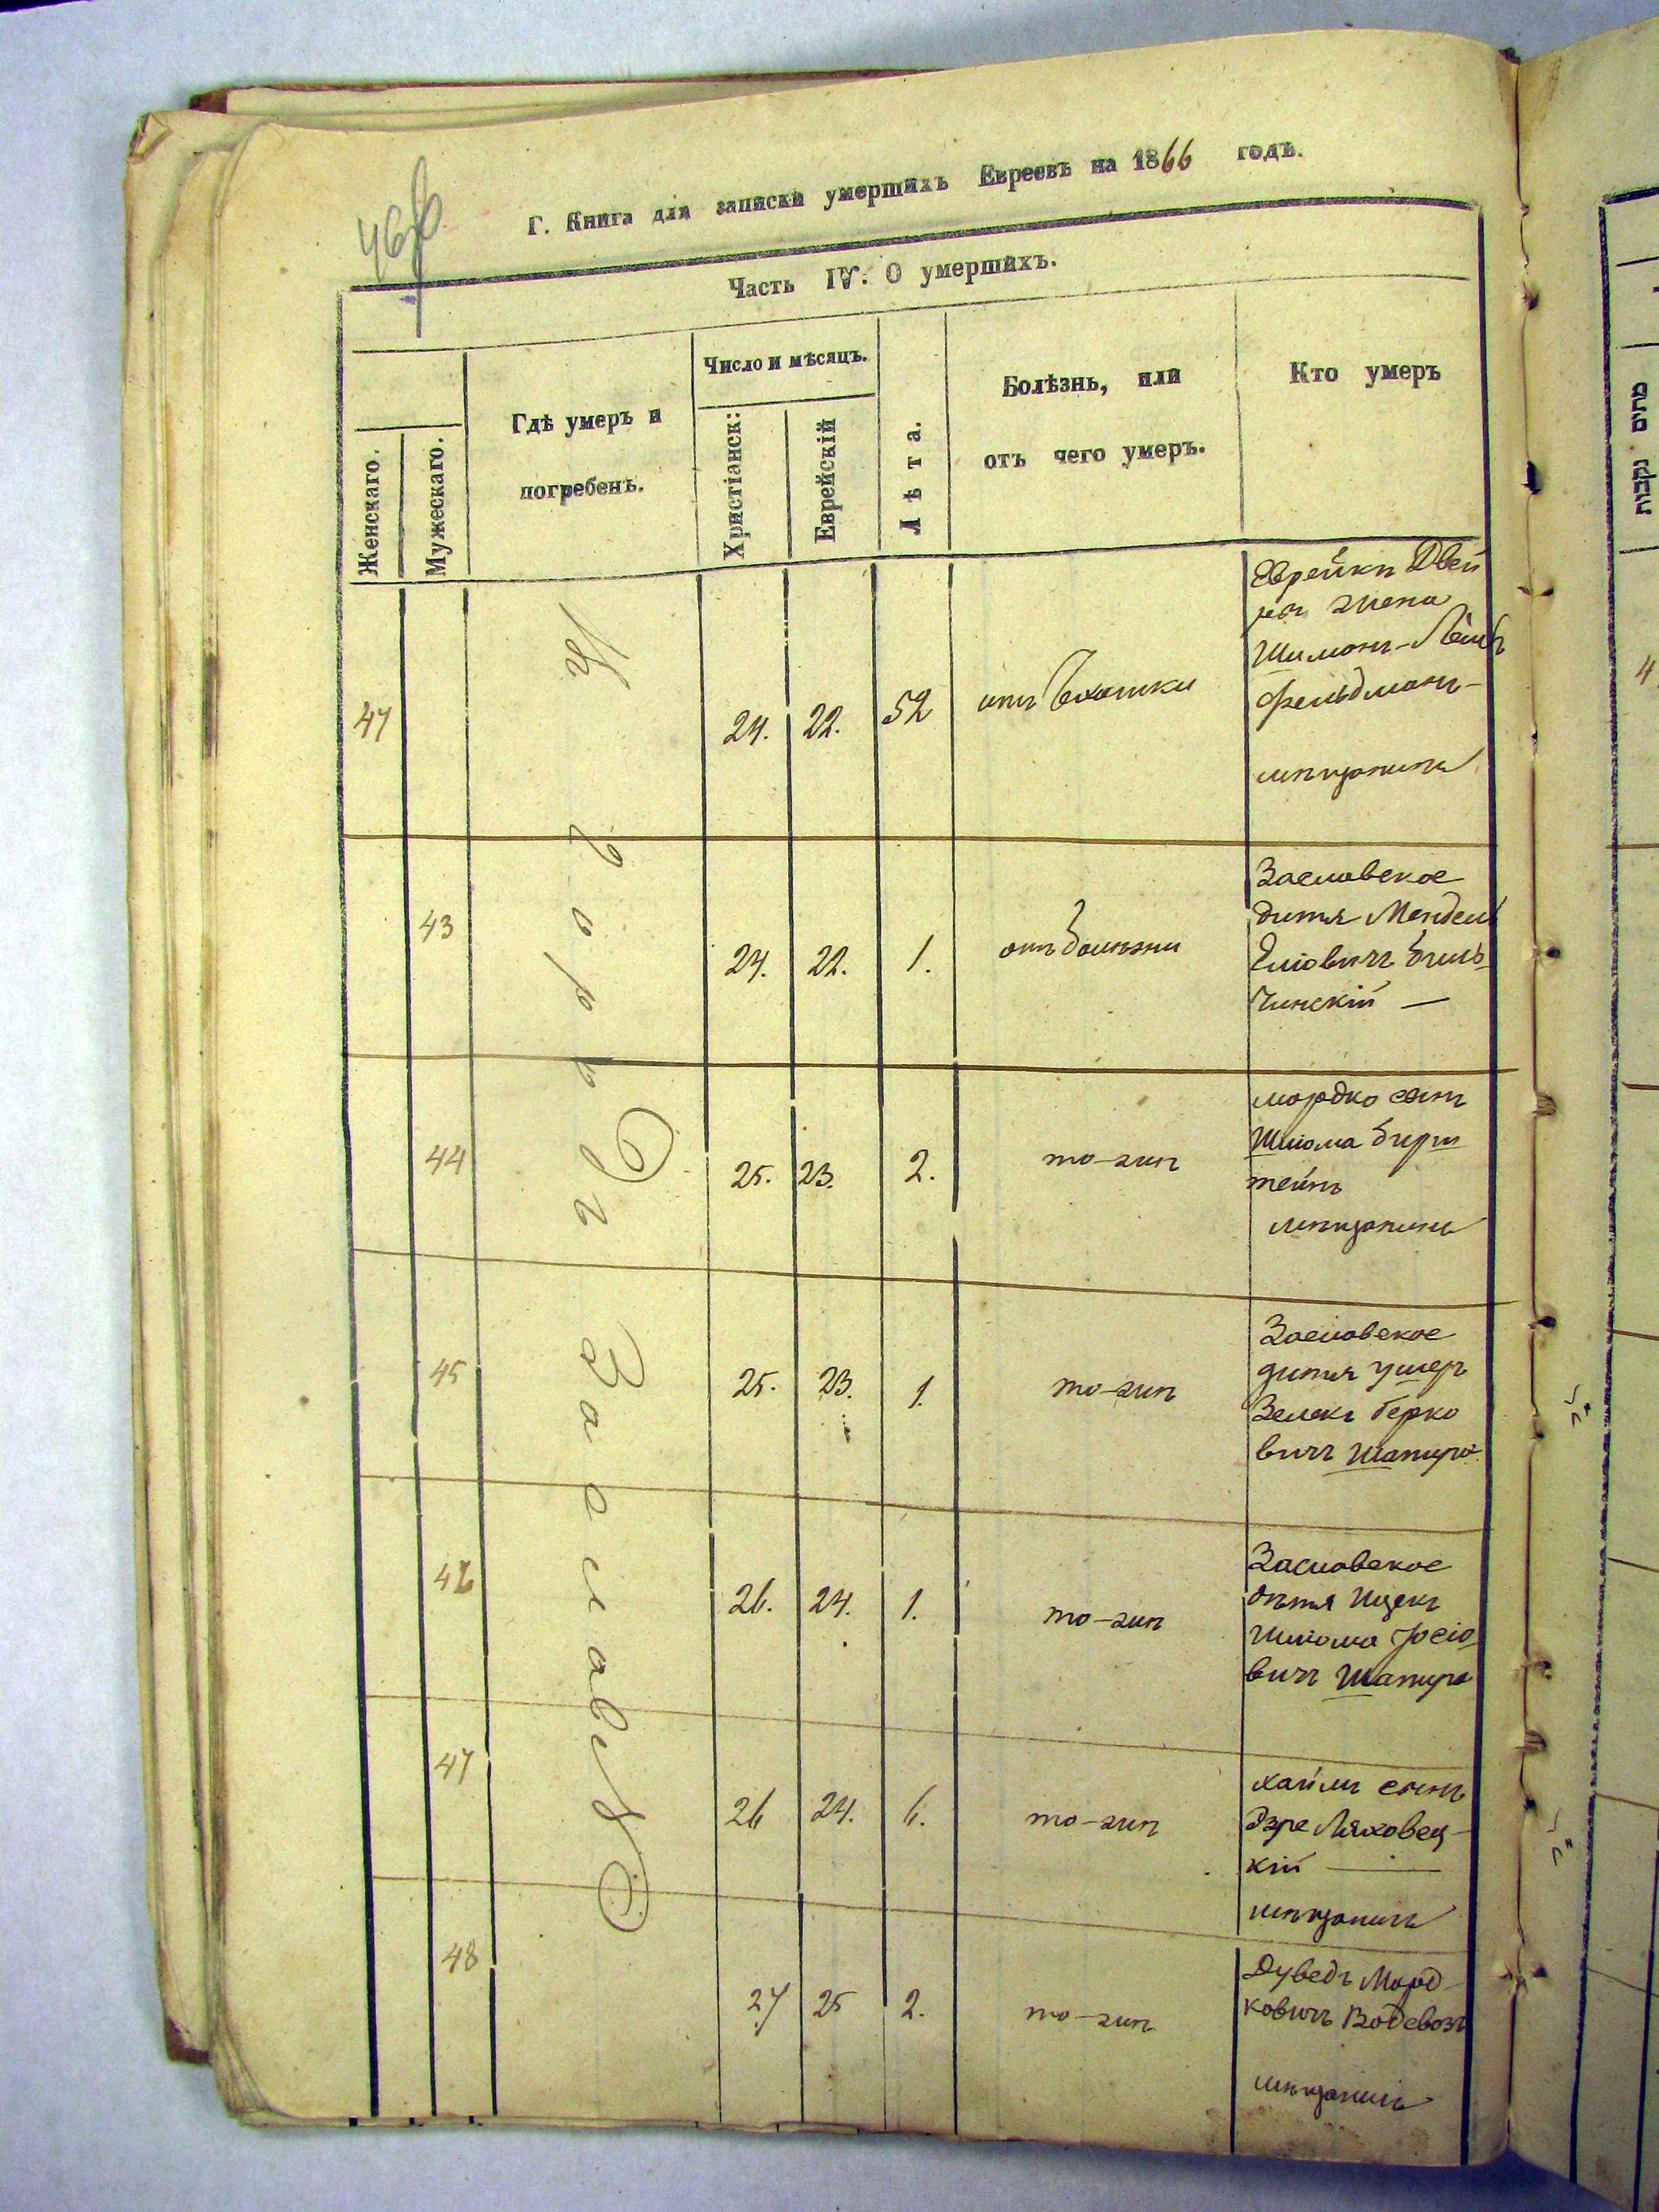 Г. Книга для записки умершихъ Евреевъ на 1866 годъ.
Часть IV. О умершихъ.
Женскаго.
Мужескаго.
Гдѣ умеръ и
погребенъ.
Число и мѣсяцъ.
Христіанск:
Еврейскій
Лѣта.
Болѣзнь, или
отъ чего умеръ.
Кто умеръ
47
24.
22.
52
Еврейка Двей
ра жена
Шимонъ-Лейб
Фельдманъ
мѣщанинъ
43
24.
22.
1.
отъ болѣзни
Заславское
дитя Мендель
чинскій —
44
25.
23.
2.
то-жѣ
мордко сынъ
Шлiома Бирш
тейнъ
мѣщанинъ
45
25.
23.
1.
то-жѣ
Заславское
дитя умеръ
Зелекъ Герко
вичъ Шапиро
46
26.
24.
1.
то-жѣ
Заславское
дѣтя Ицекъ
Шлiома Iосiо
вичъ Шапиро
47
26
24.
6.
то-жѣ
хаймъ сынъ
Эзре Ляховец-
кій —
мѣщанинъ
48
27
25
2.
то-жѣ
Дуведъ Морд-
ковичъ Водевозъ
мѣщанинъ
Въ городѣ Заславлѣ
מתים נקבות
4